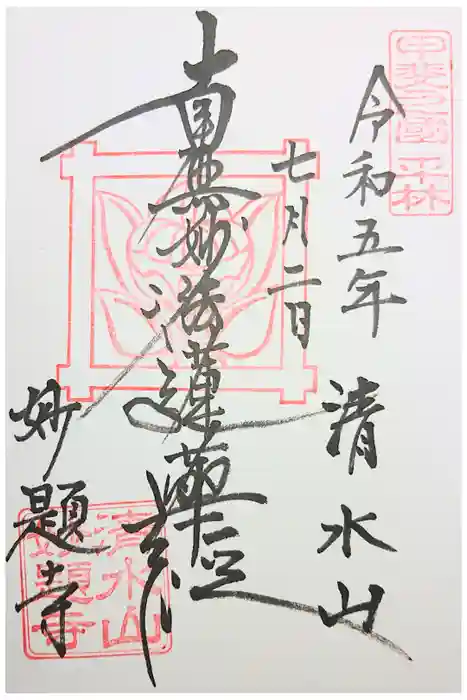 甲斐之國 平林
令和五年
七月二日
清水山
南無妙法蓮華経
妙題寺
清水山
妙題寺